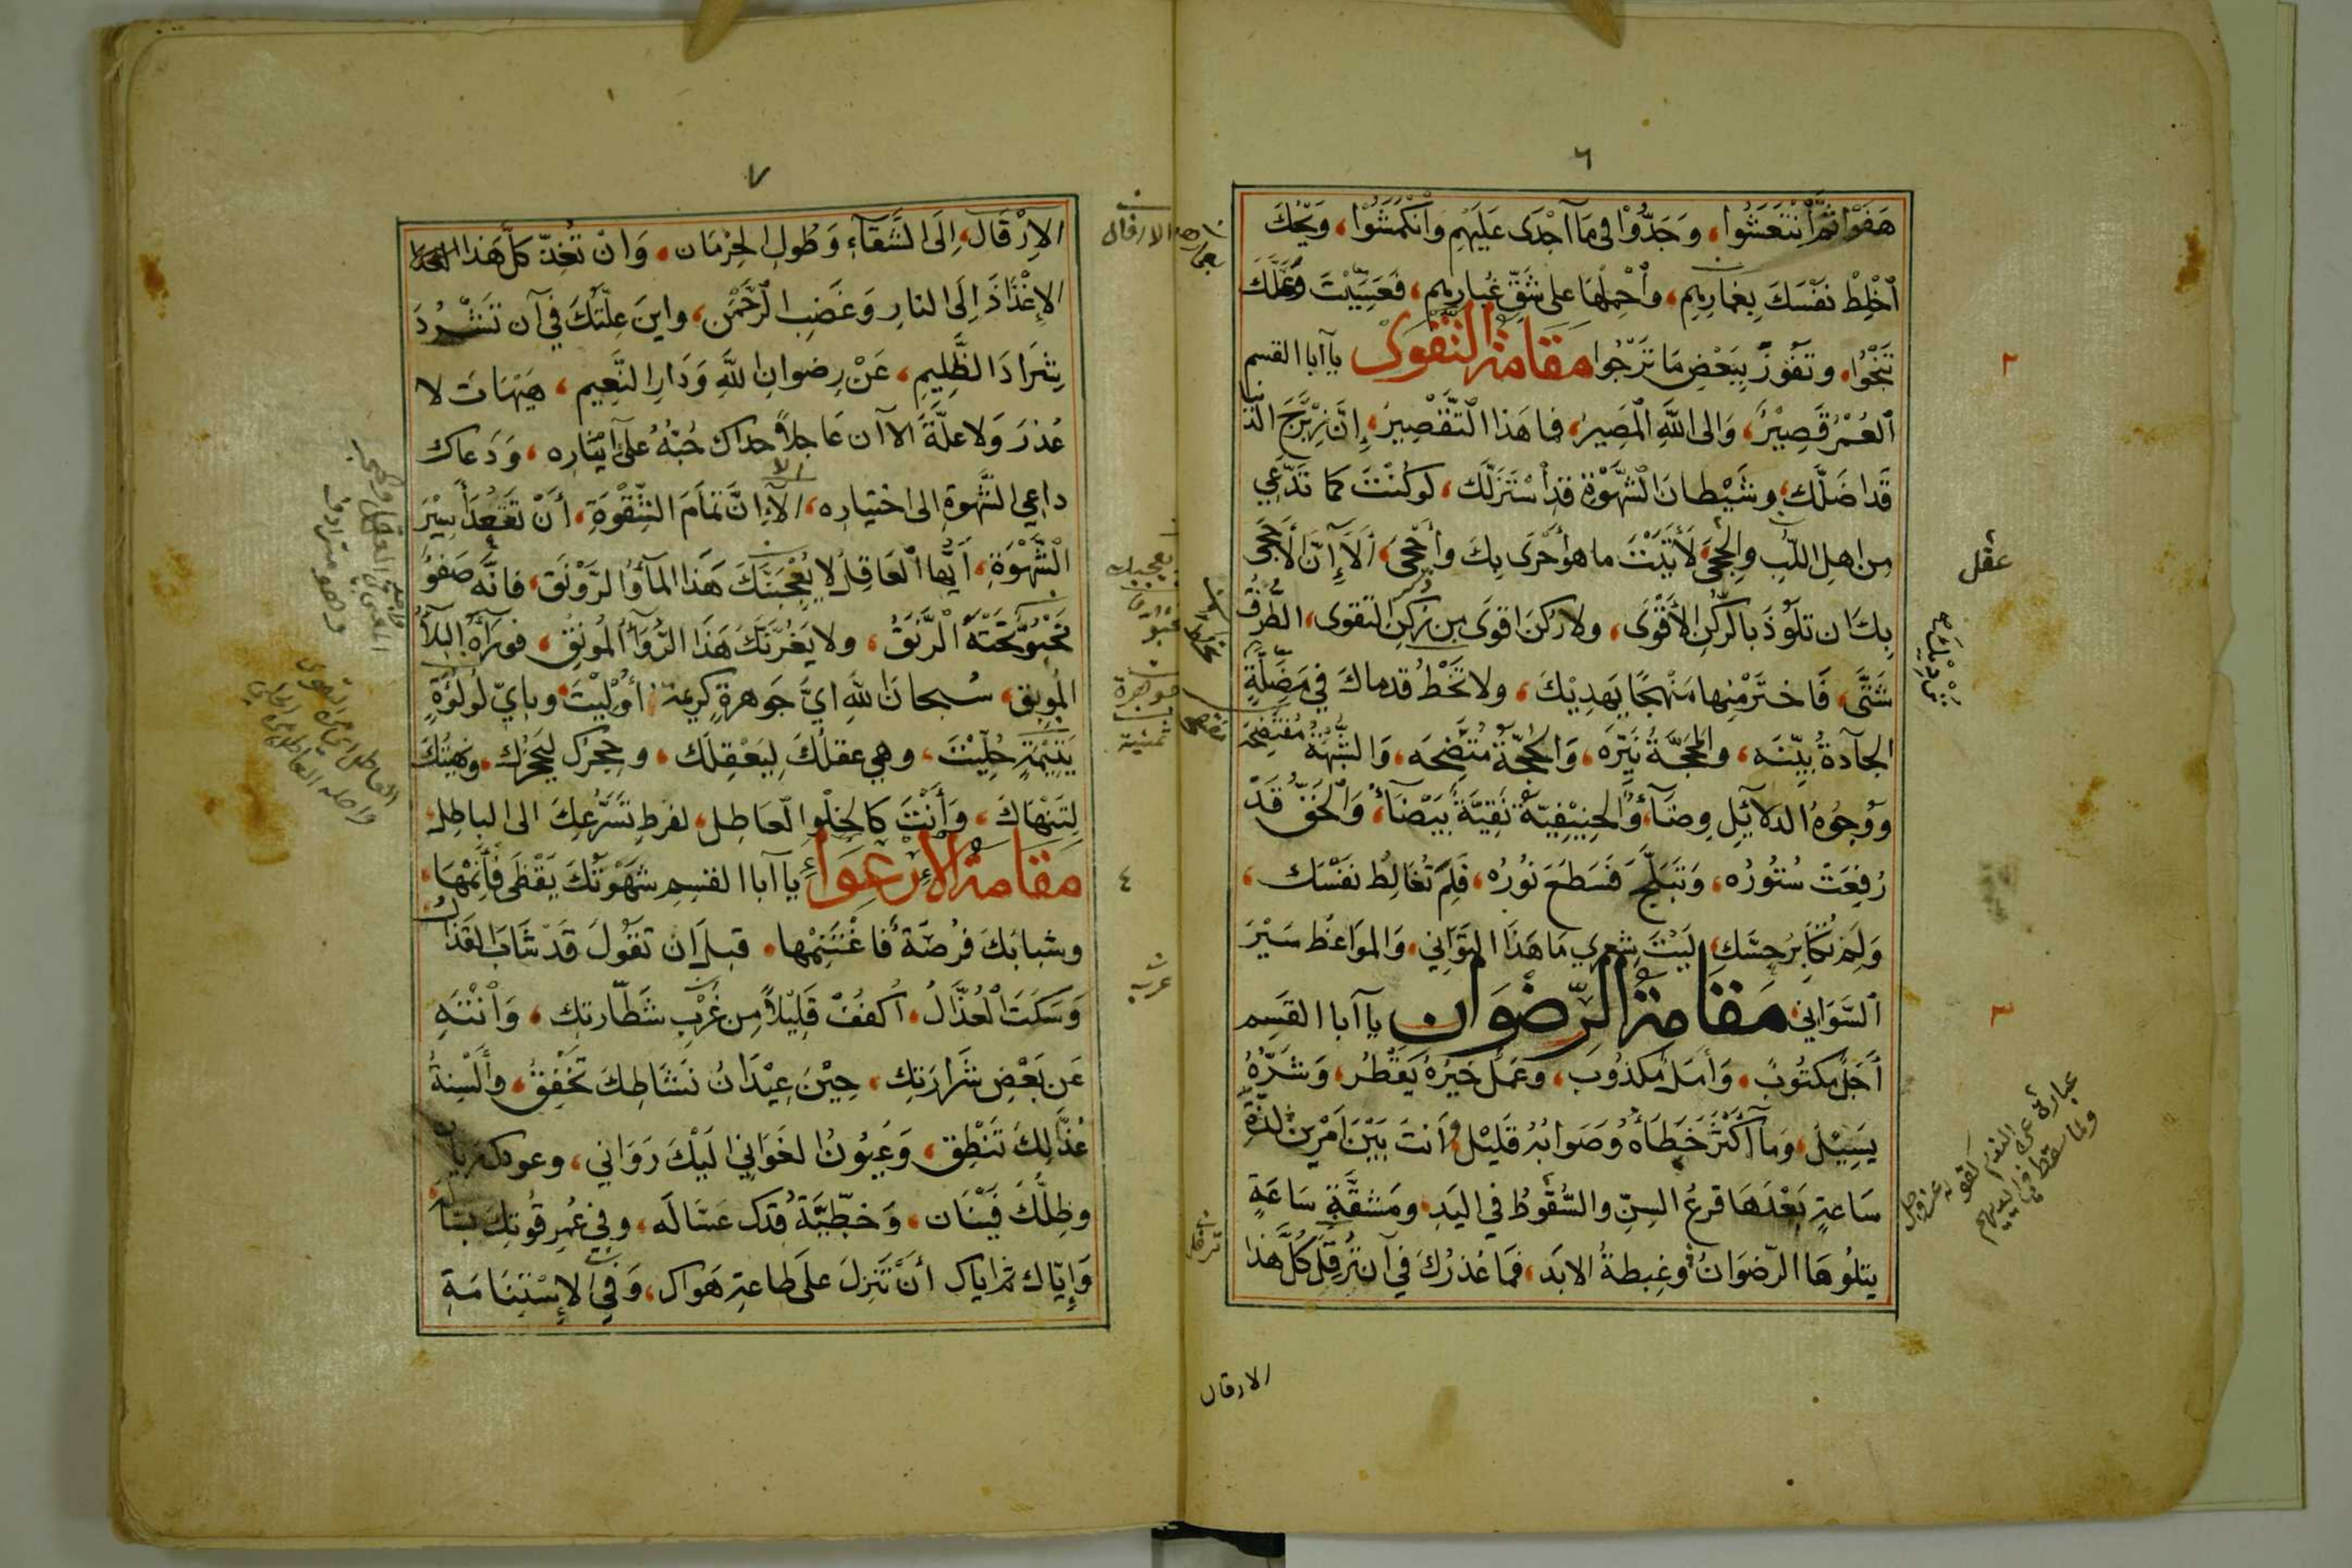 ٦
هَفَوْا ثُمَّ انْتَعَشُوا، وَجَدُّوْا فِي مَا اَجْدَى عَلَيْهِمْ وَانْكَمَشُوْا، وَيْحَكَ
اُخْلِطْ نَفْسَكَ بِغِمَارِهِمْ، وَاحْمِلْهَا عَلى شَقِّ غُبارِهِمْ، فَعَسَيْتَ
تَنْجُوْا، وتَفُوْزَ بِبَعْضِ مَا تَرْجُوا مَقَامَةُ التَّقْوَى يآ آبا القسم
اَلعُمْرُ قَصِيْرٌ، وَالى اللهِ المَصِيرُ، فما هَذا التَّقْصِيرُ، إِنَّ زِبْرِجَ الدُّنيا
قَد اضَلَّكَ، وشَيْطانَ الشَّهْوَةِ قَدِ اسْتَزَلَّكَ، لَو كُنْتَ كَما تَدَّعِي
مِن اهلِ اللُّبِ والحِجَى، لَأَتَيْتَ ما هو أَحْرَى بِكَ وأَحْجَى، أَلَا إِنَّ الاَحْجَى
بِكَ ان تَلُوْذَ بالرُّكْنِ الأَقْوَى، ولا رُكنَ اقوَى مِن رُكنِ التقوى، الطُّرُقُ
شَتَّى، فَاخترْ مِنها مَنْهجًا يَهدِيْكَ، ولا تَخْطُ قدماكَ فِي مَضَلَّةٍ
الجآدةُ بيِّنَه، والمَحَجَّةُ نَيِّرَه، وَالحُجَّةُ مُتَّضِحَه، وَالشُّبْهَةُ مُفْتَضِحَة
وَوُجُوهُ الدلآئِلِ وِضَآءٌ، وَالحَنِيْفِيَّةُ نَقِيَّةٌ بَيْضَآءُ، وَالْحَقُّ قَدْ
رُفِعَتْ سُتُورُه، وَتَبَلَّجَ فَسَطَعَ نُورُه، فَلِمَ تُغَالِطُ نَفْسَك،
وَلِمَ تُكَابِرُ حِسَّكَ، لَيْتَ شِعْرِي مَا هَذَا التَّوَانِي، وَالمَوَاعِظُ سَيْرَ
السَّوَانِي، مَقَامَةُ الرِّضْوَان يآ آبا القَسِم
أَجَلٌ مَكتُوبٌ، وَأَمَلٌ مَكذُوبٌ، وعَمَلٌ خَيْرُهُ يَقْطُر، وَشَرُّهُ
يَسِيْل، وَمآ أَكثَرَ خَطَأَهُ وَصَوابُهُ قَلِيْل، وَأَنتَ بَيْنَ أَمْرَينِ لَذَّةِ
سَاعَةٍ بَعْدَهَا قرعُ السِنِّ والسُّقُوطُ في اليَدِ، ومَشقَّةِ سَاعَةٍ
يتلُوهَا الرِّضوَانُ وغِبطةُ الابَد، فَمَا عُذرُكَ فِي آن تُرْقِلَ كُلَّ هَذا
الارقال
٢
عقل
٣
عبارة عن الندم كقوله عز وجل
ولما سقط في ايديهم
٧
الاِرْقَالَ، اِلَى الشَّقآءِ وَطُولِ الحِرْمَان، وَانْ تُغِذَّ كلَّ هَذا
الاِغْذَاذَ اِلَى النارِ وَغَضَبِ الرَّحْمَن، واينَ عِلَّتُكَ في آن تَشْرُدَ
شِرَادَ الظَّلِيمِ، عَنْ رِضوانِ اللهِ وَدَارِ النَّعِيم، هَيْهَاتَ لا
عُذرَ وَلا عِلَّةَ الا آن عَاجِلاً حداك حُبُّهُ عَلى آيْثَارِه، وَدَعاك
داعِي الشَّهوَةِ الى اختيارِه، اَلآ اِنَّ تَمَامَ الشِّقْوَةِ، أَنْ تَقعُدَ أَسِيْرَ
الشَّهْوَةِ، اَيُّها العَاقِلُ لا يُعْجِبَنَّكَ هَذا المآءُ الرَّوْنَق، فانَّه صَفْوٌ
مَخْبُوٌّ تَحْتَهُ الرَّنَقُ، ولا يَغُرَّنَّكَ هَذَا الرُّوَآءُ المُونِقُ، فورآءَهُ البلآءُ
المُوبِق، سُبحانَ اللهِ ايَّ جَوهرةٍ كريمة أُوْلِيْتَ، وبايِّ لُولُؤَةٍ
يَتِيْمَةٍ حُلِّيْتَ، وهي عقلُكَ لِيَعْقِلَك، وحِجرُك لِيَحْجُرَك، ونُهيتُكَ
لِتَنْهَاكَ، وَأَنْتَ كالخِلْوِ العَاطِل، لفرطِ تَسَرُّعِكَ الى الباطِل
مَقَامَةُ الاِرْعِوَآءِ يآ آبا القسِمِ شَهْوَتُكَ يَقْظَى فَأَنِمْهَا،
وشبابَكَ فُرْصَةٌ فاغْتَنِمْها، قبلَ اَن تَقُولَ قَدْ شَابَ القَذَالُ
وَسَكَتَ العُذَّالُ، اُكفُفْ قَلِيْلاً مِن غَرْبِ شَطَارتِك، وَانْتَهِ
عَن بَعْضِ شَرَارَتِك، حِيْنَ عِيْدَانُ نَشَاطِكَ تَخْفِقُ، وأَلسِنةُ
عُذَّالِكَ تَنْطِق، وَعُيُونُ الغَوَانِي اِلَيْكَ رَوَانِي، وعودك ريآن
وظِلُّكَ فَيْنَان، وَخطِّيَّةُ قدِّك عَسَّالَه، وفِي عُمرِ قُوتِكَ
وَاِيّاك ثم اياك أَنْ تَنزِلَ عَلَى طاعةِ هَواك، وَفِي الاِسْتِنَامَةِ
الارقال
يعجبك
جوهرة
ثمينة
٤
غرب